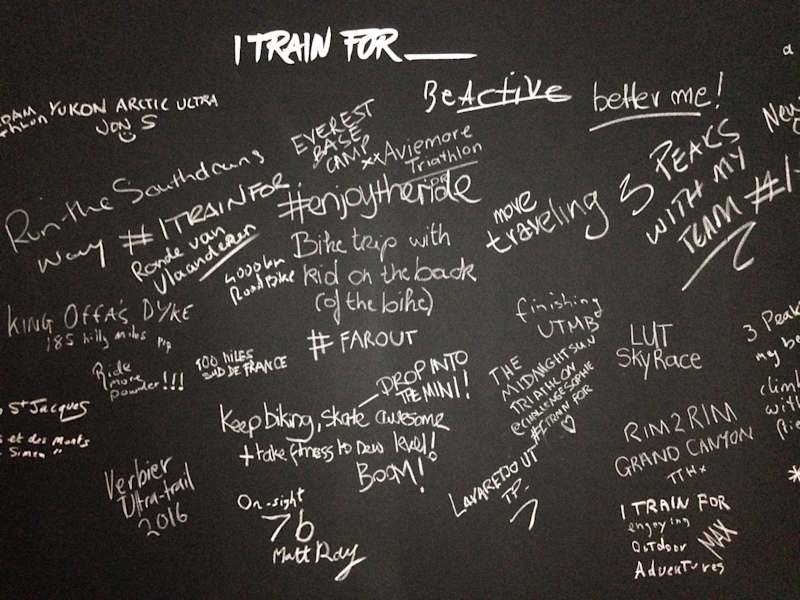 I TRAIN FOR ____
BeActive better me!
YUKON ARCTIC ULTRA
JON S
EVEREST
BASE
CAMP
xx Aviemore
Triathlon
New
3 PEAKS
WITH MY
TEAM #1
Run the Southdowns
Way
#ITRAINFOR
Ronde van
Vlaanderen
#enjoytheride
more
traveling
Bike trip with
kid on the back
(of the bike)
4000km
Road Bike
# FAROUT
KING OFFA'S DYKE
185 hilly miles
Ride
more
powder!!!
100 MILES
SUD DE FRANCE
finishing
UTMB
LUT
SKYRACE
3 Peak
my be
climb
with
THE
MIDNIGHTSUN
TRIATHLON
@CHALLENGESOPHIE
#ITRAIN FOR
DROP INTO
THE MINI!
Keep biking, skate awesome
+ take fitness to new level!
BOOM!
St Jacques
et des Monts
Simen"
RIM2RIM
GRAND CANYON
Verbier
Ultra-trail
2016
On-sight
7b
Matt Ray
LAVAREDO UT
I TRAIN FOR
enjoying
OUTDOOR
ADVENTURES
MAX